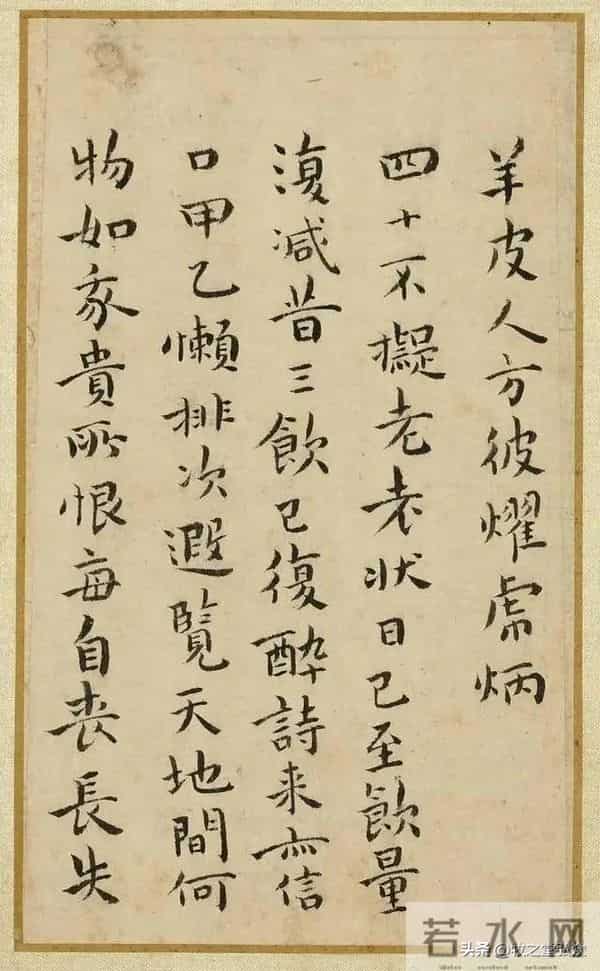 羊皮人方彼燿虎炳
四十不擬老衰状日已至飲量
復減昔三飲已復醉詩来亦信
口甲乙懶排次遐覽天地間何
物如我貴所恨每自喪長失
若水网
头条 @牧之堂